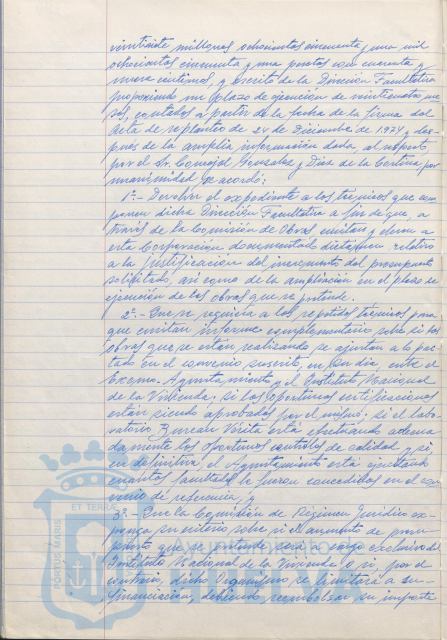 veintisiete millones ochocientas cincuenta y una mil
ochocientas cincuenta y una pesetas con cuarenta y
nueve céntimos, y escrito de la Dirección Facultativa
proponiendo un plazo de ejecución de veinticuatro me-
ses, contados a partir de la fecha de la firma del
Acta de replanteo de 24 de Diciembre de 1974 y des-
pués de la amplia información dada, al respecto,
por el Sr. Concejal González y Díaz de la Cortina, por
unanimidad se acordó:
1º.- Devolver el expediente a los técnicos que com-
ponen dicha Dirección Facultativa a fin de que, a
través de la Comisión de Obras emitan y eleven a
esta Corporación documentado dictamen relativo
a la justificación del incremento del presupuesto
solicitado, así como de la ampliación en el plazo de
ejecución de las obras que se pretende.
2º.- Que se requiera a los repetidos técnicos para
que emitan informe complementario sobre si las
obras que se están realizando se ajustan a lo pac-
tado en el convenio suscrito, en su día, entre el
Excmo. Ayuntamiento y el Instituto Nacional
de la Vivienda; si las oportunas certificaciones
están siendo aprobadas por el mismo; si el labo-
ratorio Bureau Veritas está efectuando adecua-
damente los oportunos controles de calidad y si,
en definitiva, el Ayuntamiento está ejecutando
cuantas facultades le fueron concedidas en el con-
venio de referencia, y
3º.- Que la Comisión de Régimen Jurídico ex-
ponga su criterio sobre si el aumento de presu-
puesto que se pretende será a cargo exclusivo del
Instituto Nacional de la Vivienda o si, por el
contrario, dicho Organismo se limitará a su
financiación, debiendo reembolsar su importe
ET TERRA
PORTUS MARIS